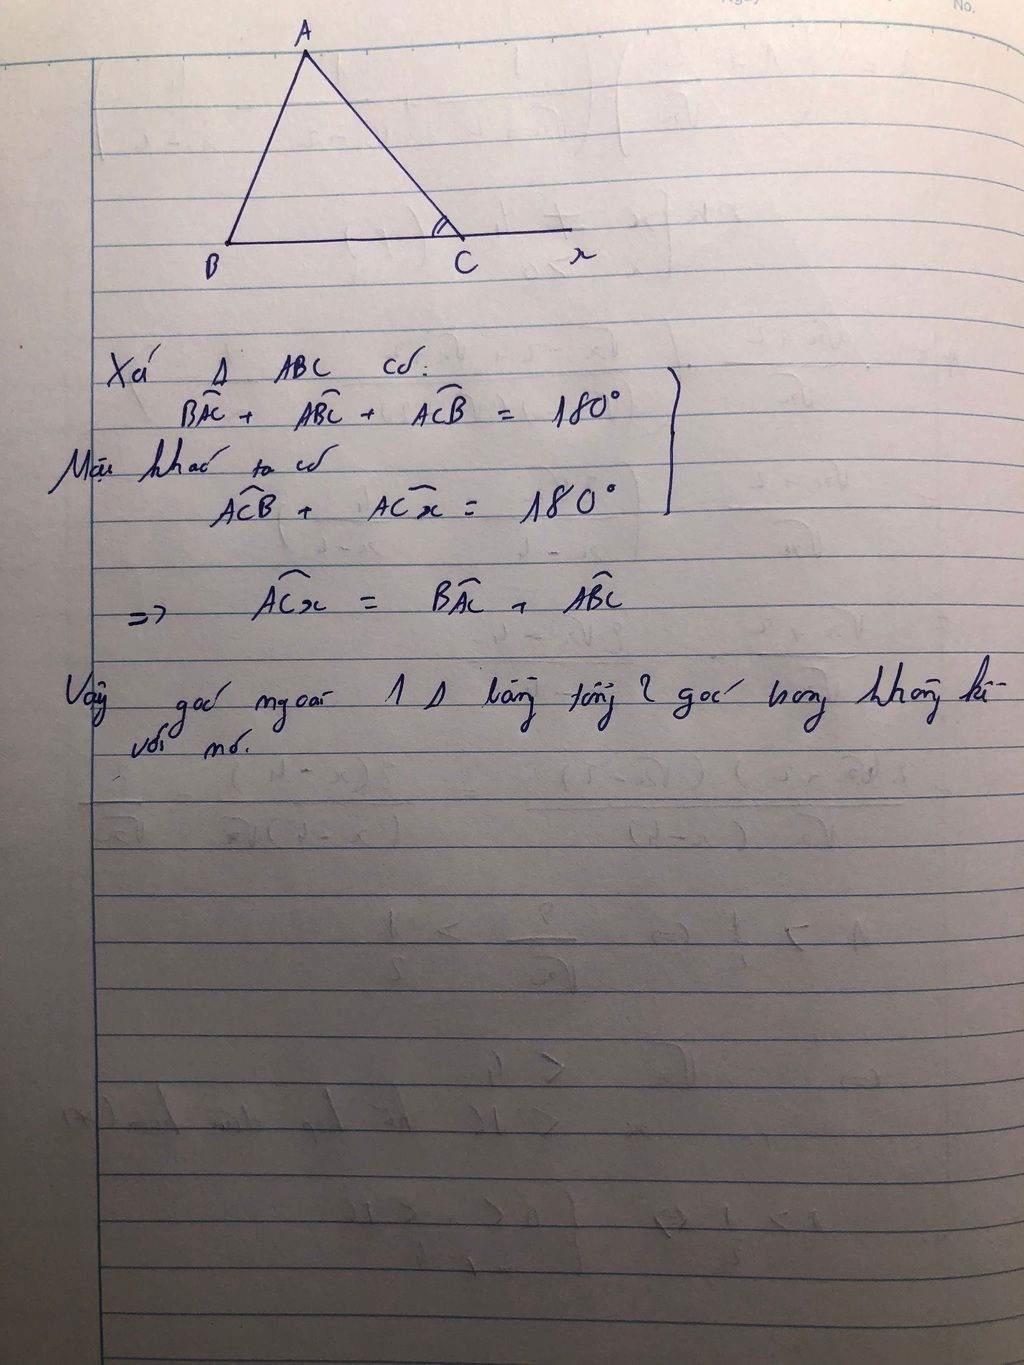 No.
A
B
C
x
Xét Δ ABC có:
BÂC + AB̂C + AĈB = 180°
Mặt khác ta có
AĈB + AĈx = 180°
=> AĈx = BÂC + AB̂C
Vậy góc ngoài 1 Δ bằng tổng 2 góc trong không kề
với nó.